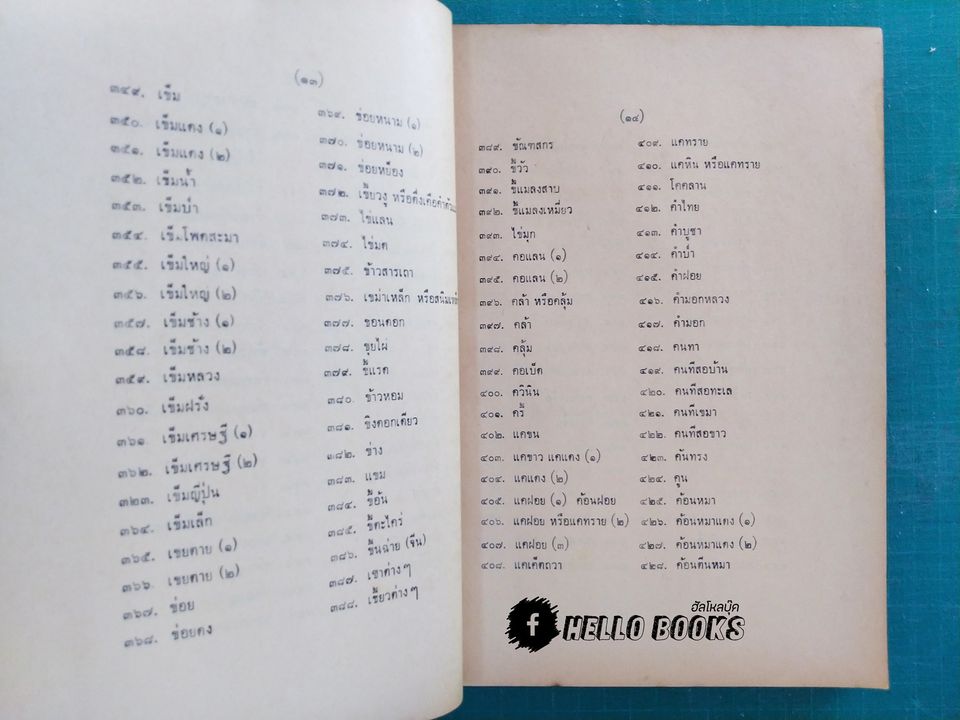 (๑๓)
๓๔๙. เข็ม
๓๕๐. เข็มแดง (๑)
๓๕๑. เข็มแดง (๒)
๓๕๒. เข็มน้ำ
๓๕๓. เข็มป่า
๓๕๔.
๓๕๕. เข็มใหญ่ (๑)
๓๕๖. เข็มใหญ่ (๒)
๓๕๗. เข็มช้าง (๑)
๓๕๘. เข็มช้าง (๒)
๓๕๙. เข็มหลวง
๓๖๐. เข็มฝรั่ง
๓๖๑. เข็มเศรษฐี (๑)
๓๖๒. เข็มเศรษฐี (๒)
๓๒๓. เข็มญี่ปุ่น
๓๖๔. เข็มเล็ก
๓๖๕. เขยตาย (๑)
๓๖๖. เขยตาย (๒)
๓๖๗. ข่อย
๓๖๘. ข่อยดง
๓๖๙. ข่อยหนาม (๑)
๓๗๐. ข่อยหนาม (๒)
๓๗๑. ข่อยหย็อง
๓๗๒. เขี้ยวงู หรือ
๓๗๓. ไข่แลน
๓๗๔. ไข่มด
๓๗๕. ข้าวสารเถา
๓๗๖. เขม่าเหล็ก หรือ
๓๗๗. ขอนดอก
๓๗๘. ขุยไผ่
๓๗๙. ขี้แรด
๓๘๐. ข้าวหอม
๓๘๑. ขิงดอกเดียว
๓๘๒. ข่าง
๓๘๓. แขม
๓๘๔. ขี้อ้น
๓๘๕. ขี้ตะไคร่
๓๘๖. ขึ้นฉ่าย (จีน)
๓๘๗. เขาต่างๆ
๓๘๘. เขี้ยวต่างๆ
(๑๔)
๓๘๙. ขัณฑสกร
๓๙๐. ขี้วัว
๓๙๑. ขี้แมลงสาบ
๓๙๒. ขี้แมลงเหมี่ยว
๓๙๓. ไข่มุก
๓๙๔. คอแลน (๑)
๓๙๕. คอแลน (๒)
๓๙๖. คล้า หรือคลุ้ม
๓๙๗. คล้า
๓๙๘. คลุ้ม
๓๙๙. คอเป็ด
๔๐๐. ควินิน
๔๐๑. ครั่
๔๐๒. แคขน
๔๐๓. แคขาว แคแดง (๑)
๔๐๔. แคแดง (๒)
๔๐๕. แคฝอย (๑) ค้อนฝอย
๔๐๖. แคฝอย หรือแคทราย (๒)
๔๐๗. แคฝอย (๓)
๔๐๘. แคเค็ดถวา
๔๐๙. แคทราย
๔๑๐. แคหิน หรือแคทราย
๔๑๑. โคคลาน
๔๑๒. คำไทย
๔๑๓. คำบูชา
๔๑๔. คำป่า
๔๑๕. คำฝอย
๔๑๖. คำมอกหลวง
๔๑๗. คำมอก
๔๑๘. คนทา
๔๑๙. คนทีสอบ้าน
๔๒๐. คนทีสอทะเล
๔๒๑. คนทีเขมา
๔๒๒. คนทีสอขาว
๔๒๓. คันทรง
๔๒๔. คูน
๔๒๕. ค้อนหมา
๔๒๖. ค้อนหมาแดง (๑)
๔๒๗. ค้อนหมาแดง (๒)
๔๒๘. ค้อนตีนหมา
ฮัลโหลบุ๊ค
f HELLO BOOKS